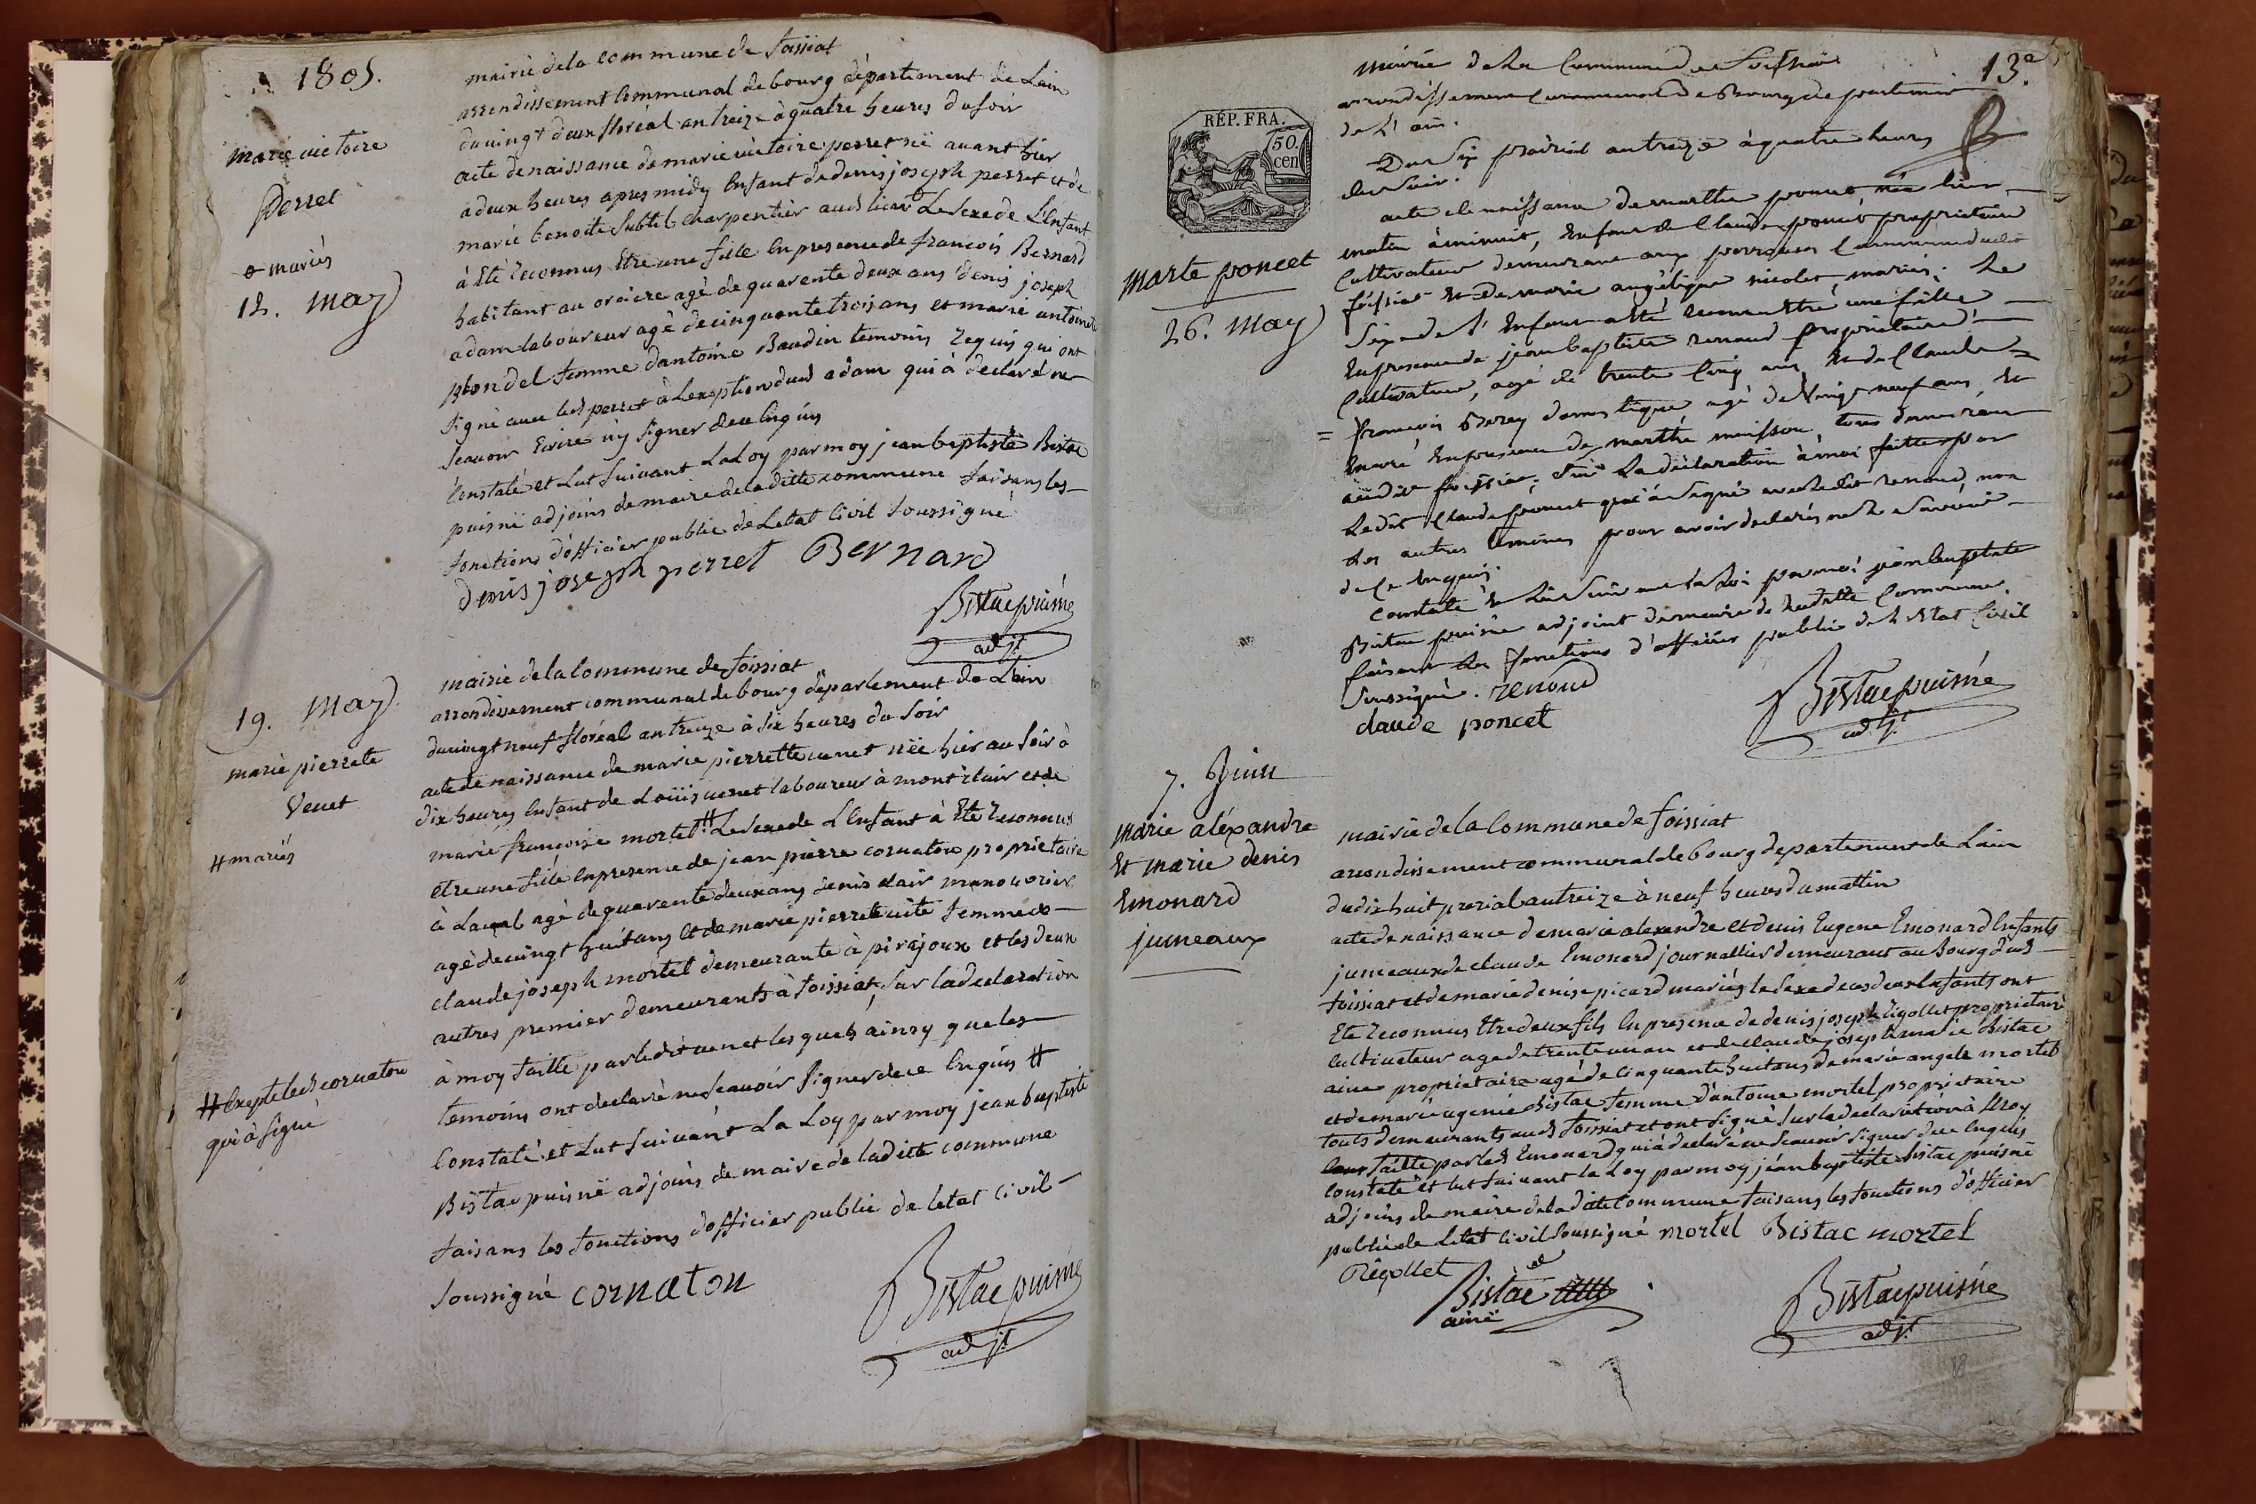 1805.
mairie dela commune de foissiat
arrondissement Communal de bourg département de Lain
du vingt deux floréal an treize à quatre heures du soir
marie victoire
perret
acte denaissance de marie victoire perret née avant hier
a deux heures apres midy Enfant de denis joseph perret et de
marie benoite subtil charpentier aud lieu o Le sexe de L'Enfant
o mariés
12. may
à Eté Reconnus Etre une fille En presence de francois Bernard
habitant au agé de quarente deux ans denis joseph
adam laboureur agé de cinquante trois ans et marie antoinette
blondel femme dantoine Baudin temoins Requis qui ont
signé avec led perret à Lexception dud adam qui à declaré ne
scavoir Ecrire ny signer de ce Enquis
Constaté et Lut suivant La Loy par moy jean baptiste Bistac
puisné adjoins de maire de la ditte commune faisans les
fonctions d'officier public de Letat Civil soussigné
denis joseph perret Bernard
Bistac puisné
adjt
mairie de la Commune de foissiat
19. may
arrondissement communal de bourg département de Lain
du vingt neuf floréal an treize à six heures du soir
marie pierrette
Venet
acte de naissance de marie pierrette venet née hier au soir à
dix heures Enfant de Loüis venet laboureur à montclair et de
marie francoise mortel # Le sexe de L'Enfant à Eté Reconnus
# mariés
etre une fille En presence de jean pierre cornaton proprietaire
à Laval agé de quarente deux ans denis clair manouvrier
agé de vingt huit ans et de marie pierrette vite femme de
claude joseph mortel demeurante à pirajoux et les deux
autres premier demeurants à foissiat, sur la declaration
à moy faitte par ledit venet lesquels ainsy que les
temoins ont declaré ne scavoir signer de ce Enquis #
# Excepté led cornaton
qui à signé
Constaté et Lut suivant La Loy par moy jean baptiste
Bistac puisné adjoins de maire de laditte commune
faisans les fonctions d'officier public de letat civil
soussigné cornaton
Bistac puisné
adjt
13e
Mairie de La Commune de foissiat
arrondissement Communal de Bourg departement
de L'ain.
RÉP. FRA.
50.
cen
Du six prairial an treize à quatre heures
du soir.
acte de naissance de marthe poncet née hier
matin à minuit, Enfant de Claude poncet proprietaire
marte poncet
26. may
Cultivateur demeurant aux Commune dudit
foissiat Et de marie angélique nicolet, mariés; Le
sexe de l'Enfant a été reconnu être une fille
En presence de jean baptiste renaud proprietaire
Cultivateur, agé de trente cinq ans Et de Claude =
= françois Berey domestique agé de vingt neuf ans, Et
Encore En presence de marthe tous demeurans
audit foissiat; sur La déclaration à moi faitte par
Ledit Claude poncet qui a signé avec ledit renaud, non
Les autres témoins pour avoir déclarés ne le savoir
de ce Enquis.
constaté Et Lû suivant La Loi par moi jean baptiste
Bistac puisné adjoint de maire de laditte Commune
faisant Les fonctions d'officier public de L'Etat Civil
soussigné. renoud
claude poncet
Bistac puisné
adjt
7. Juin
marie aléxandre
Et marie denis
Emonard
jumeaux
mairie de la Commune de foissiat
arrondissement communal de bourg departement de Lain
du dix huit prerial an treize à neuf heures du mattin
acte de naissance de marie alexandre et denis Eugene Emonard Enfants
jumeaux de claude Emonard journallier demeurant au bourg dud
foissiat et de marie denise picard mariés le sexe de ces deux Enfants ont
Eté Reconnus Etre deux fils En presence de denis joseph Rigollet proprietaire
Cultivateur agé de trente un an et de claude joseph marie Bistac
ainé proprietaire agé de cinquante huit ans de marie angele mortel
et de marie ugenie Bistac femme d'antoine mortel proprietaire
touts demeurants aud foissiat et ont signé sur la declaration à Moy
faitte par led Emonard qui à declaré ne Scavoir signer de ce Enquis
constaté et lut suivant la Loy par moy jéan baptiste Bistac puisné
adjoins de maire de la ditte Commune faisans les fonctions d'officier
public de Létat Civil soussigné mortel Bistac mortel
Régollet
Bistac
ainé
Bistac puisné
adjt